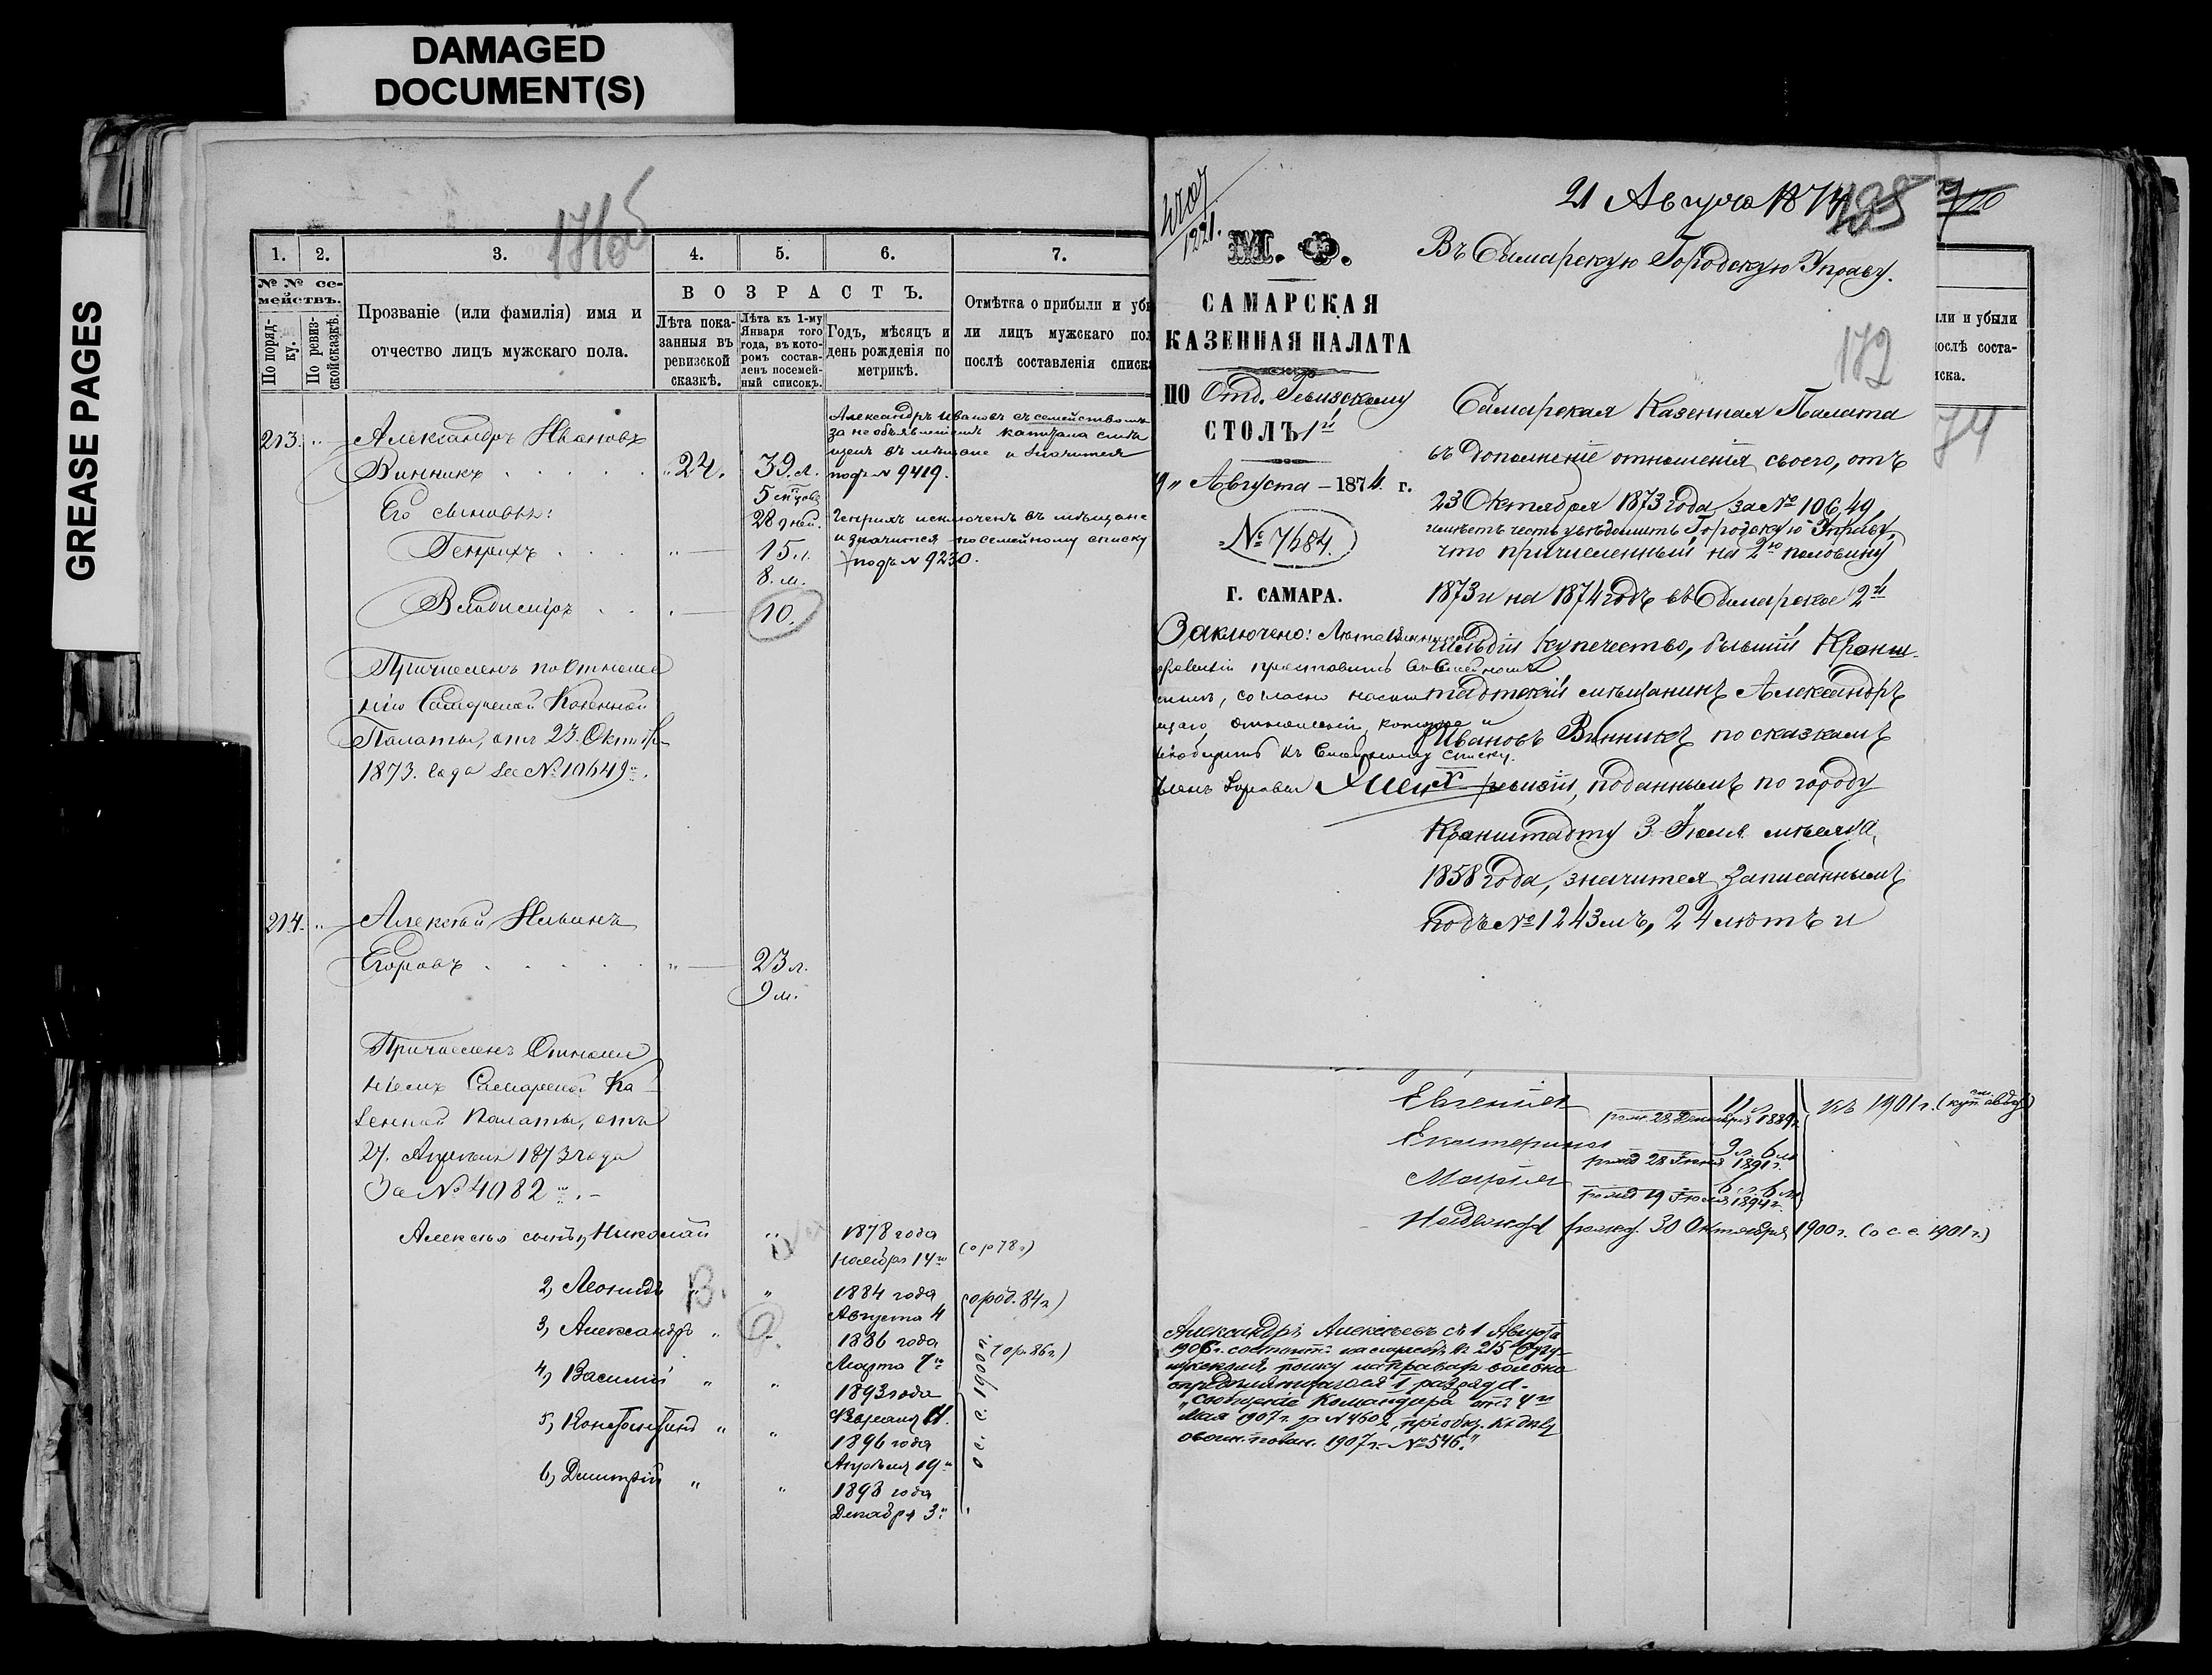 DAMAGED
DOCUMENT(S)
GREASE PAGES
1. 2. 3. 4. 5. 6. 7.
№ № се-
мействъ.
По поряд-
ку.
По ревиз-
ской сказкѣ.
Прозваніе (или фамилія) имя и
отчество лицъ мужскаго пола.
ВОЗРАСТЪ.
Лѣта пока-
занныя въ
ревизской
сказкѣ.
Лѣта къ 1-му
Января того
года, въ кото-
ромъ состав-
ленъ посемей-
ный списокъ.
Годъ, мѣсяцъ и
день рожденія по
метрикѣ.
Отмѣтка о прибыли и уб
ли лицъ мужскаго пол
послѣ составленія списк
213. Александръ Ивановъ
Винникъ 24. 39 л.
5 мѣс
28 дней.
Александръ Ивановъ съ семействомъ
за необъявленіемъ капитала
въ мѣщане и значится
подъ № 9419.
Его сыновья:
Генрихъ 15 л.
8. м.
Генрихъ исключенъ въ мѣщане
и значится по семейному списку
подъ № 9230.
Владиміръ 10.
Причисленъ по Отноше
нію Самарской Казенной
Палаты, отъ 23. Октября
1873. года за № 10649.
214. Алексѣй Ильинъ
Егоровъ 23 л.
9 м.
Причисленъ Отноше
ніемъ Самарской Ка
зенной Палаты, отъ
27. Апрѣля 1873 года
За № 4082
Алексѣя сынъ, Николай 1878 года
Ноября 14 (о р 78 г)
2, Леонидъ 1884 года
Августа 4 (о род. 84 г.)
3, Александръ 1886 года
Марта 7 (о р. 86 г.)
4, Василій 1893 года
5, Константинъ 1896 года
Апрѣля 19
6, Димитрій 1898 года
Декабря 3
о с. с. 1900 г.
21 Августа 1874
1221.
М. Ф.
САМАРСКАЯ
КАЗЕННАЯ ПАЛАТА
ПО Отд. Ревизскому
СТОЛЪ 1й
Августа 1874 г.
№ 7684.
Г. САМАРА.
Въ Самарскую Городскую Управу.
172
74
Самарская Казенная Палата
въ дополненіе отношенія своего, отъ
23 Октября 1873 года за № 10649,
имѣетъ честь увѣдомить Городскую Управу,
что причисленный на 2ю половину
1873 и на 1874 годъ въ Самарское 2й
гильдіи купечество, бывшій Кронш-
тадтскій мѣщанинъ Александръ
Ивановъ Винникъ по сказкамъ
X ревизіи, поданнымъ по городу
Кронштадту 3 Іюля мѣсяца,
1858 года, значится записаннымъ
подъ № 1243мъ, 24 лѣтъ и
Заключено:
Членъ Управы
ли и убыли
послѣ соста-
иска.
Евгенія 11 л.
рожд 28 Декабря 1889 г.
Екатерина 9 л. 6 м
рожд 28 Іюня 1891 г.
Марія 6 л. 6 м
рожд 19 Іюля 1894 г.
къ 1901 г.
Надежда рожд. 30 Октября 1900 г. (о с. с. 1901 г.)
Александръ Алексѣевъ съ 1 Августа
1906 г. состоитъ на службѣ въ 215 Бугу-
полку на правах вольно
опредѣляющагося 1 разряда.
сообщеніе Командира отъ 4
Мая 1907 г. за № 4602,
1907 г. № 546.